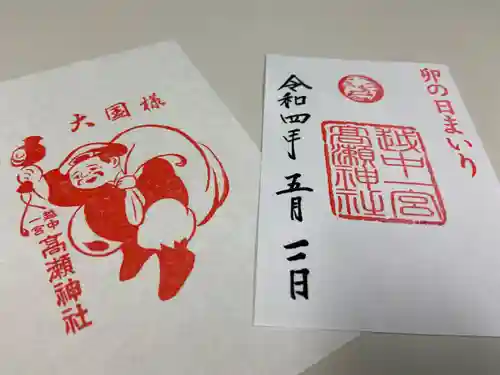 大国様
越中
一宮
高瀬神社
卯の日まいり
越中一宮
高瀬神社
令和四年 五月 一一日